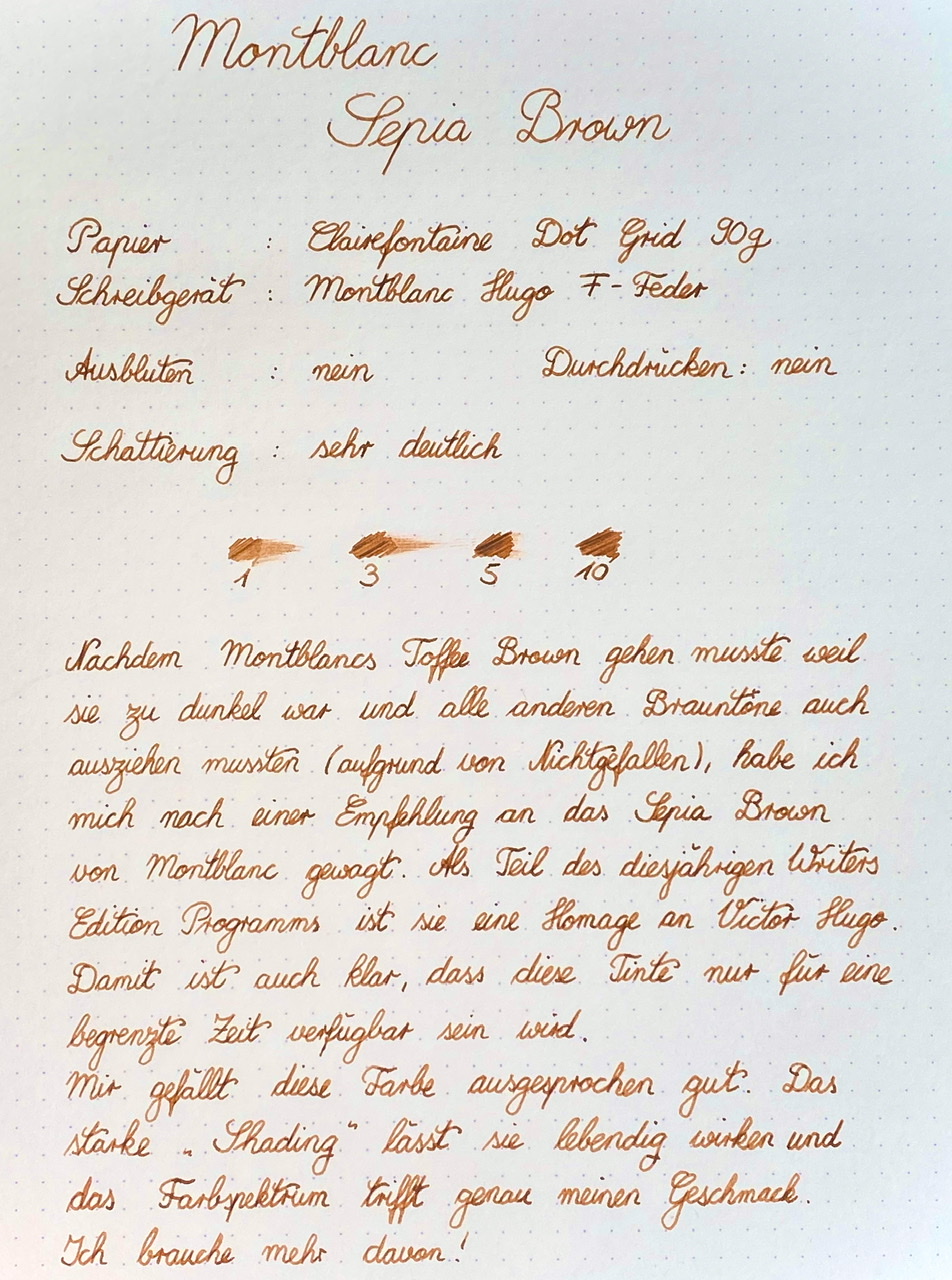 Montblanc
Sepia Brown
Papier : Clairefontaine Dot Grid 90g
Schreibgerät : Montblanc Hugo F-Feder
Ausbluten : nein Durchdrücken: nein
Schattierung : sehr deutlich
1 3 5 10
Nachdem Montblancs Toffee Brown gehen musste weil
sie zu dunkel war und alle anderen Brauntöne auch
ausziehen mussten (aufgrund von Nichtgefallen), habe ich
mich nach einer Empfehlung an das Sepia Brown
von Montblanc gewagt. Als Teil des diesjährigen Writers
Edition Programms ist sie eine Homage an Victor Hugo.
Damit ist auch klar, dass diese Tinte nur für eine
begrenzte Zeit verfügbar sein wird.
Mir gefällt diese Farbe ausgesprochen gut. Das
starke „Shading“ lässt sie lebendig wirken und
das Farbspektrum trifft genau meinen Geschmack.
Ich brauche mehr davon!